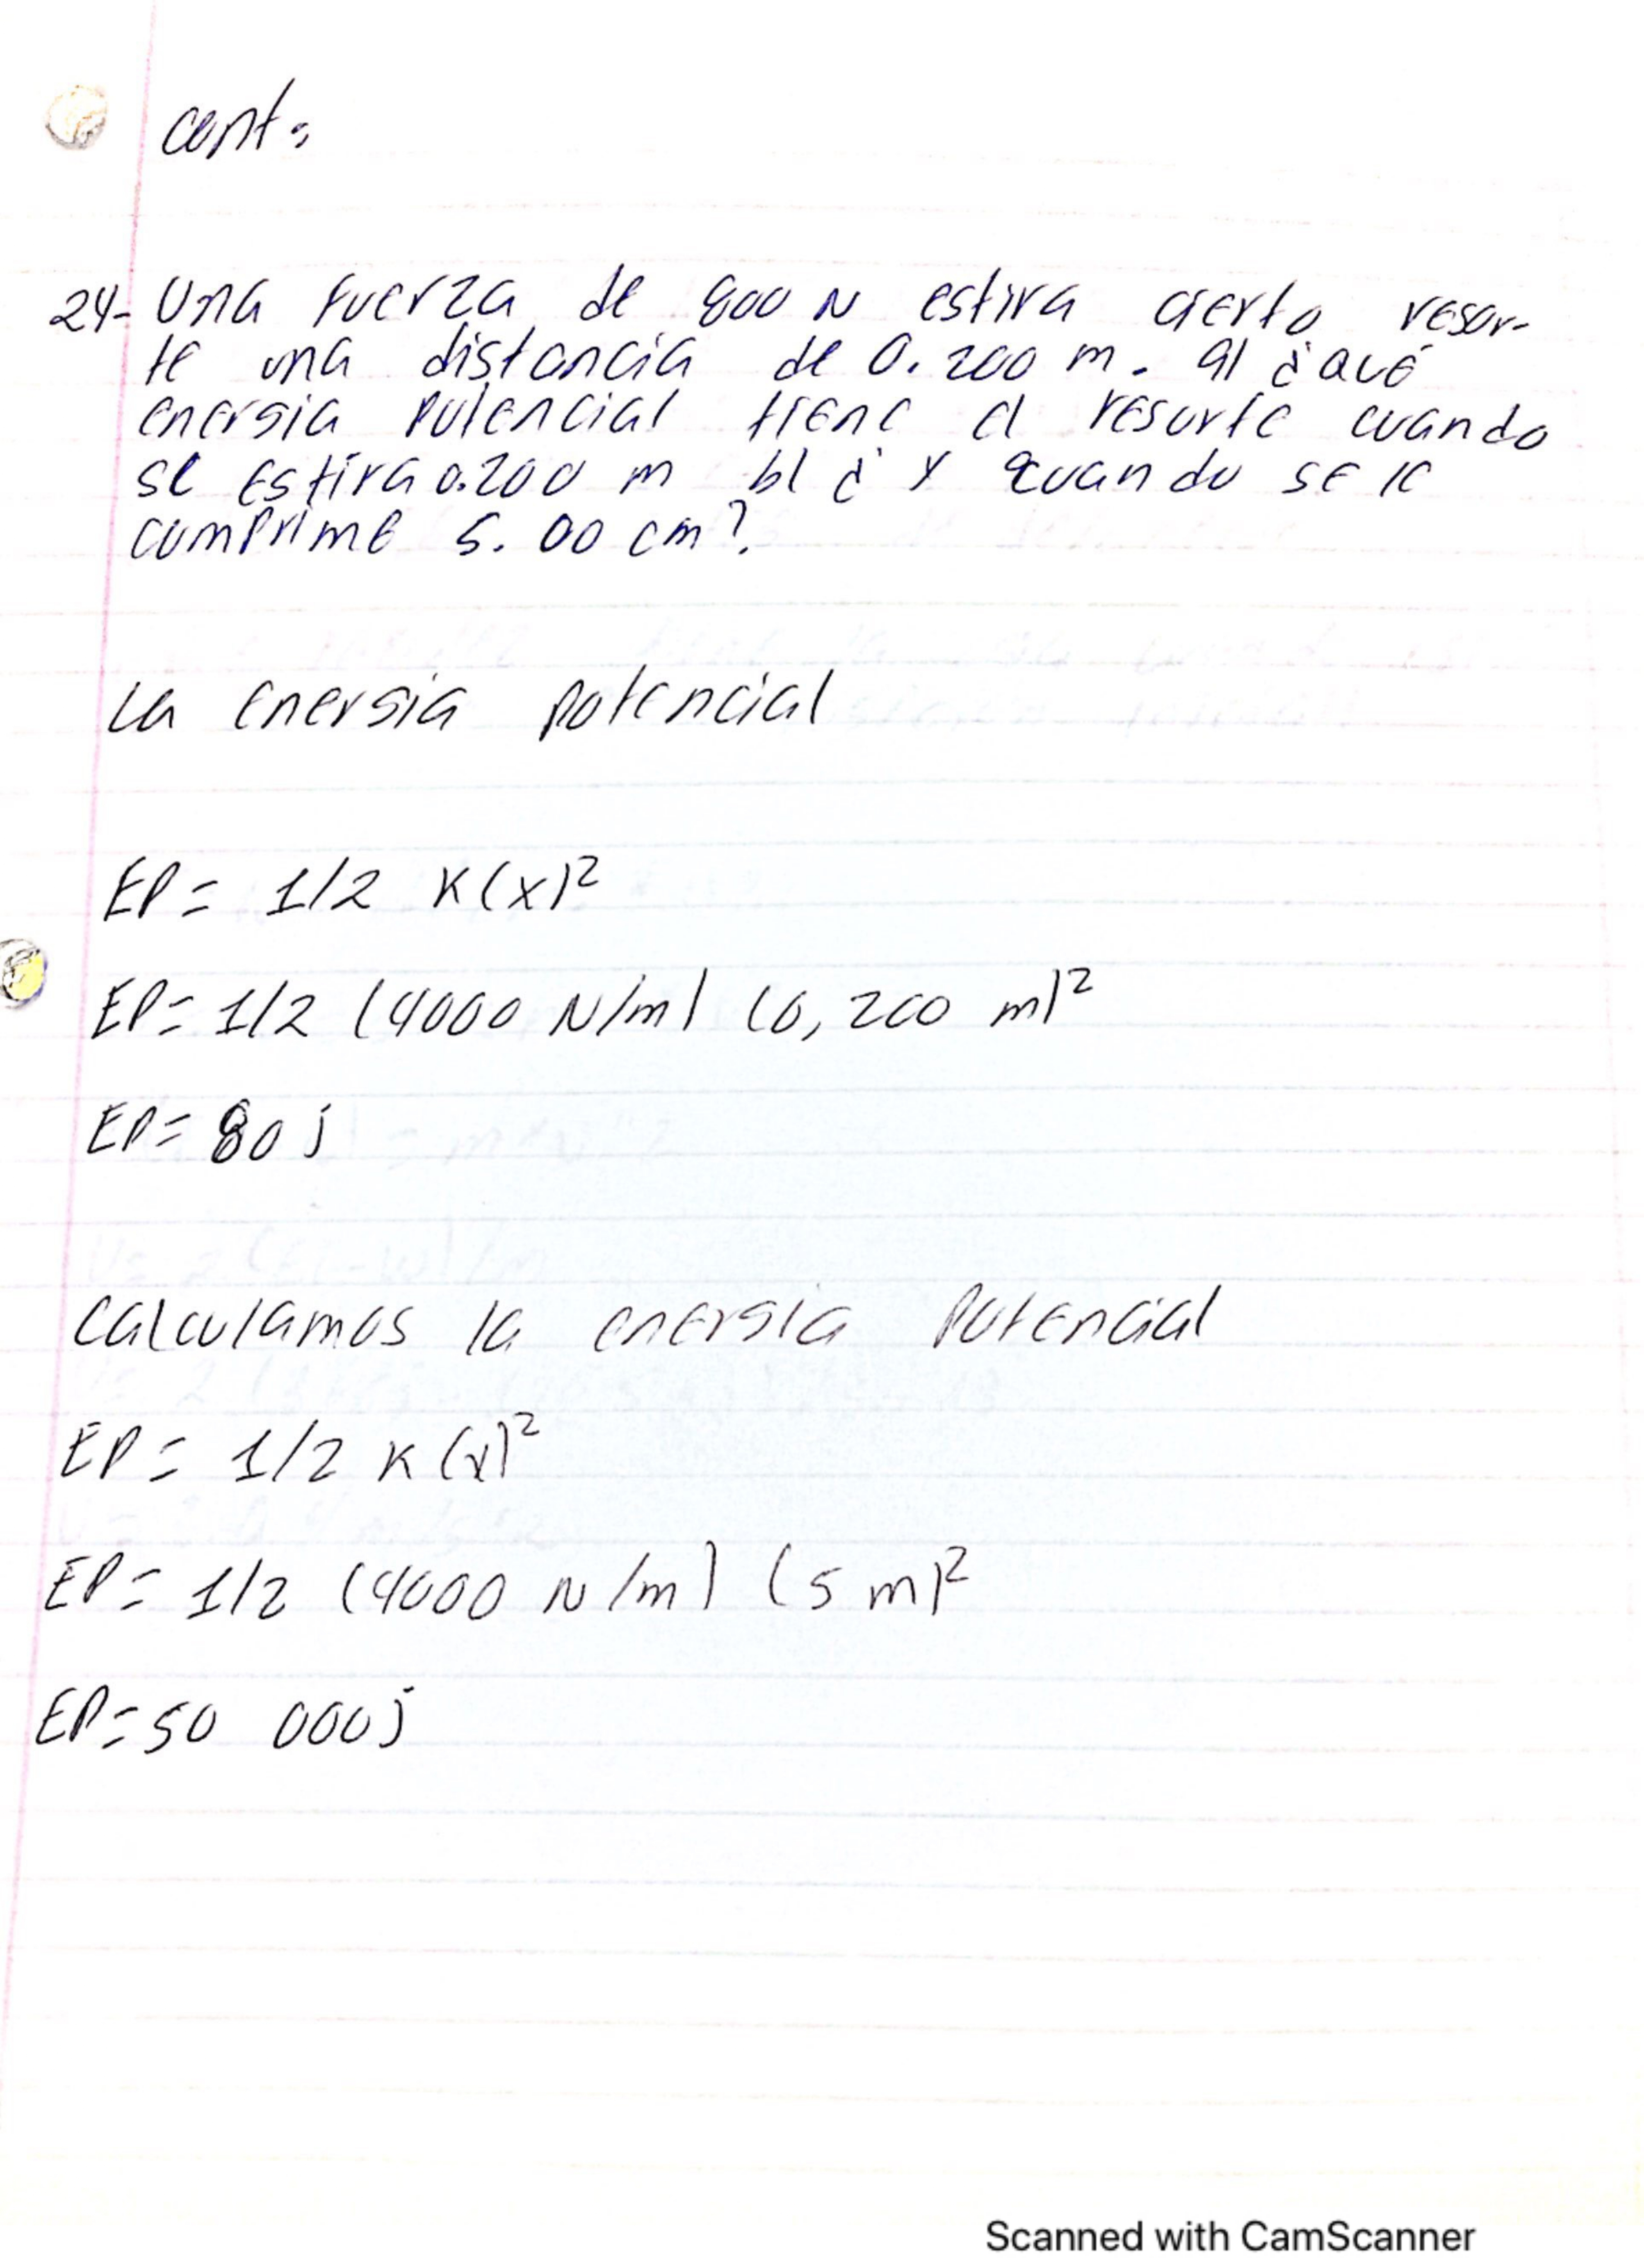 cont.
24- Una fuerza de 800 N estira cierto resor-
te una distancia de 0.200 m. a) ¿Qué
energia potencial tiene el resorte cuando
se estira 0.200 m b) ¿ y cuando se le
comprime 5.00 cm?.
La energia potencial
EP= 1/2 K(x)²
EP= 1/2 (4000 N/m) (0,200 m)²
EP= 80 j
Calculamos la energia potencial
EP= 1/2 K (x)²
EP= 1/2 (4000 N/m) (5 m)²
EP= 50 000 j
Scanned with CamScanner